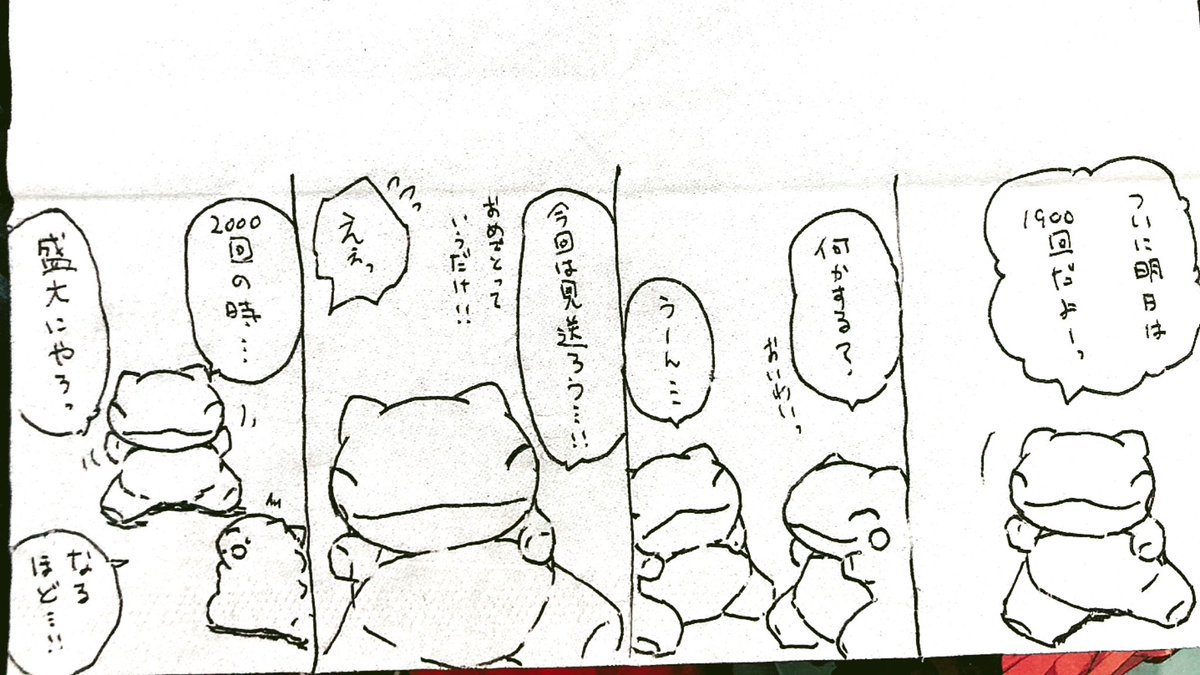 ついに明日は
1900回だよーっ
何かする?
おいわいっ
うーん…
今回は見送ろう…!!
おめでとって
いうだけ!!
えぇっ
2000
回の時…
盛大にやろっ
なる
ほど…!!